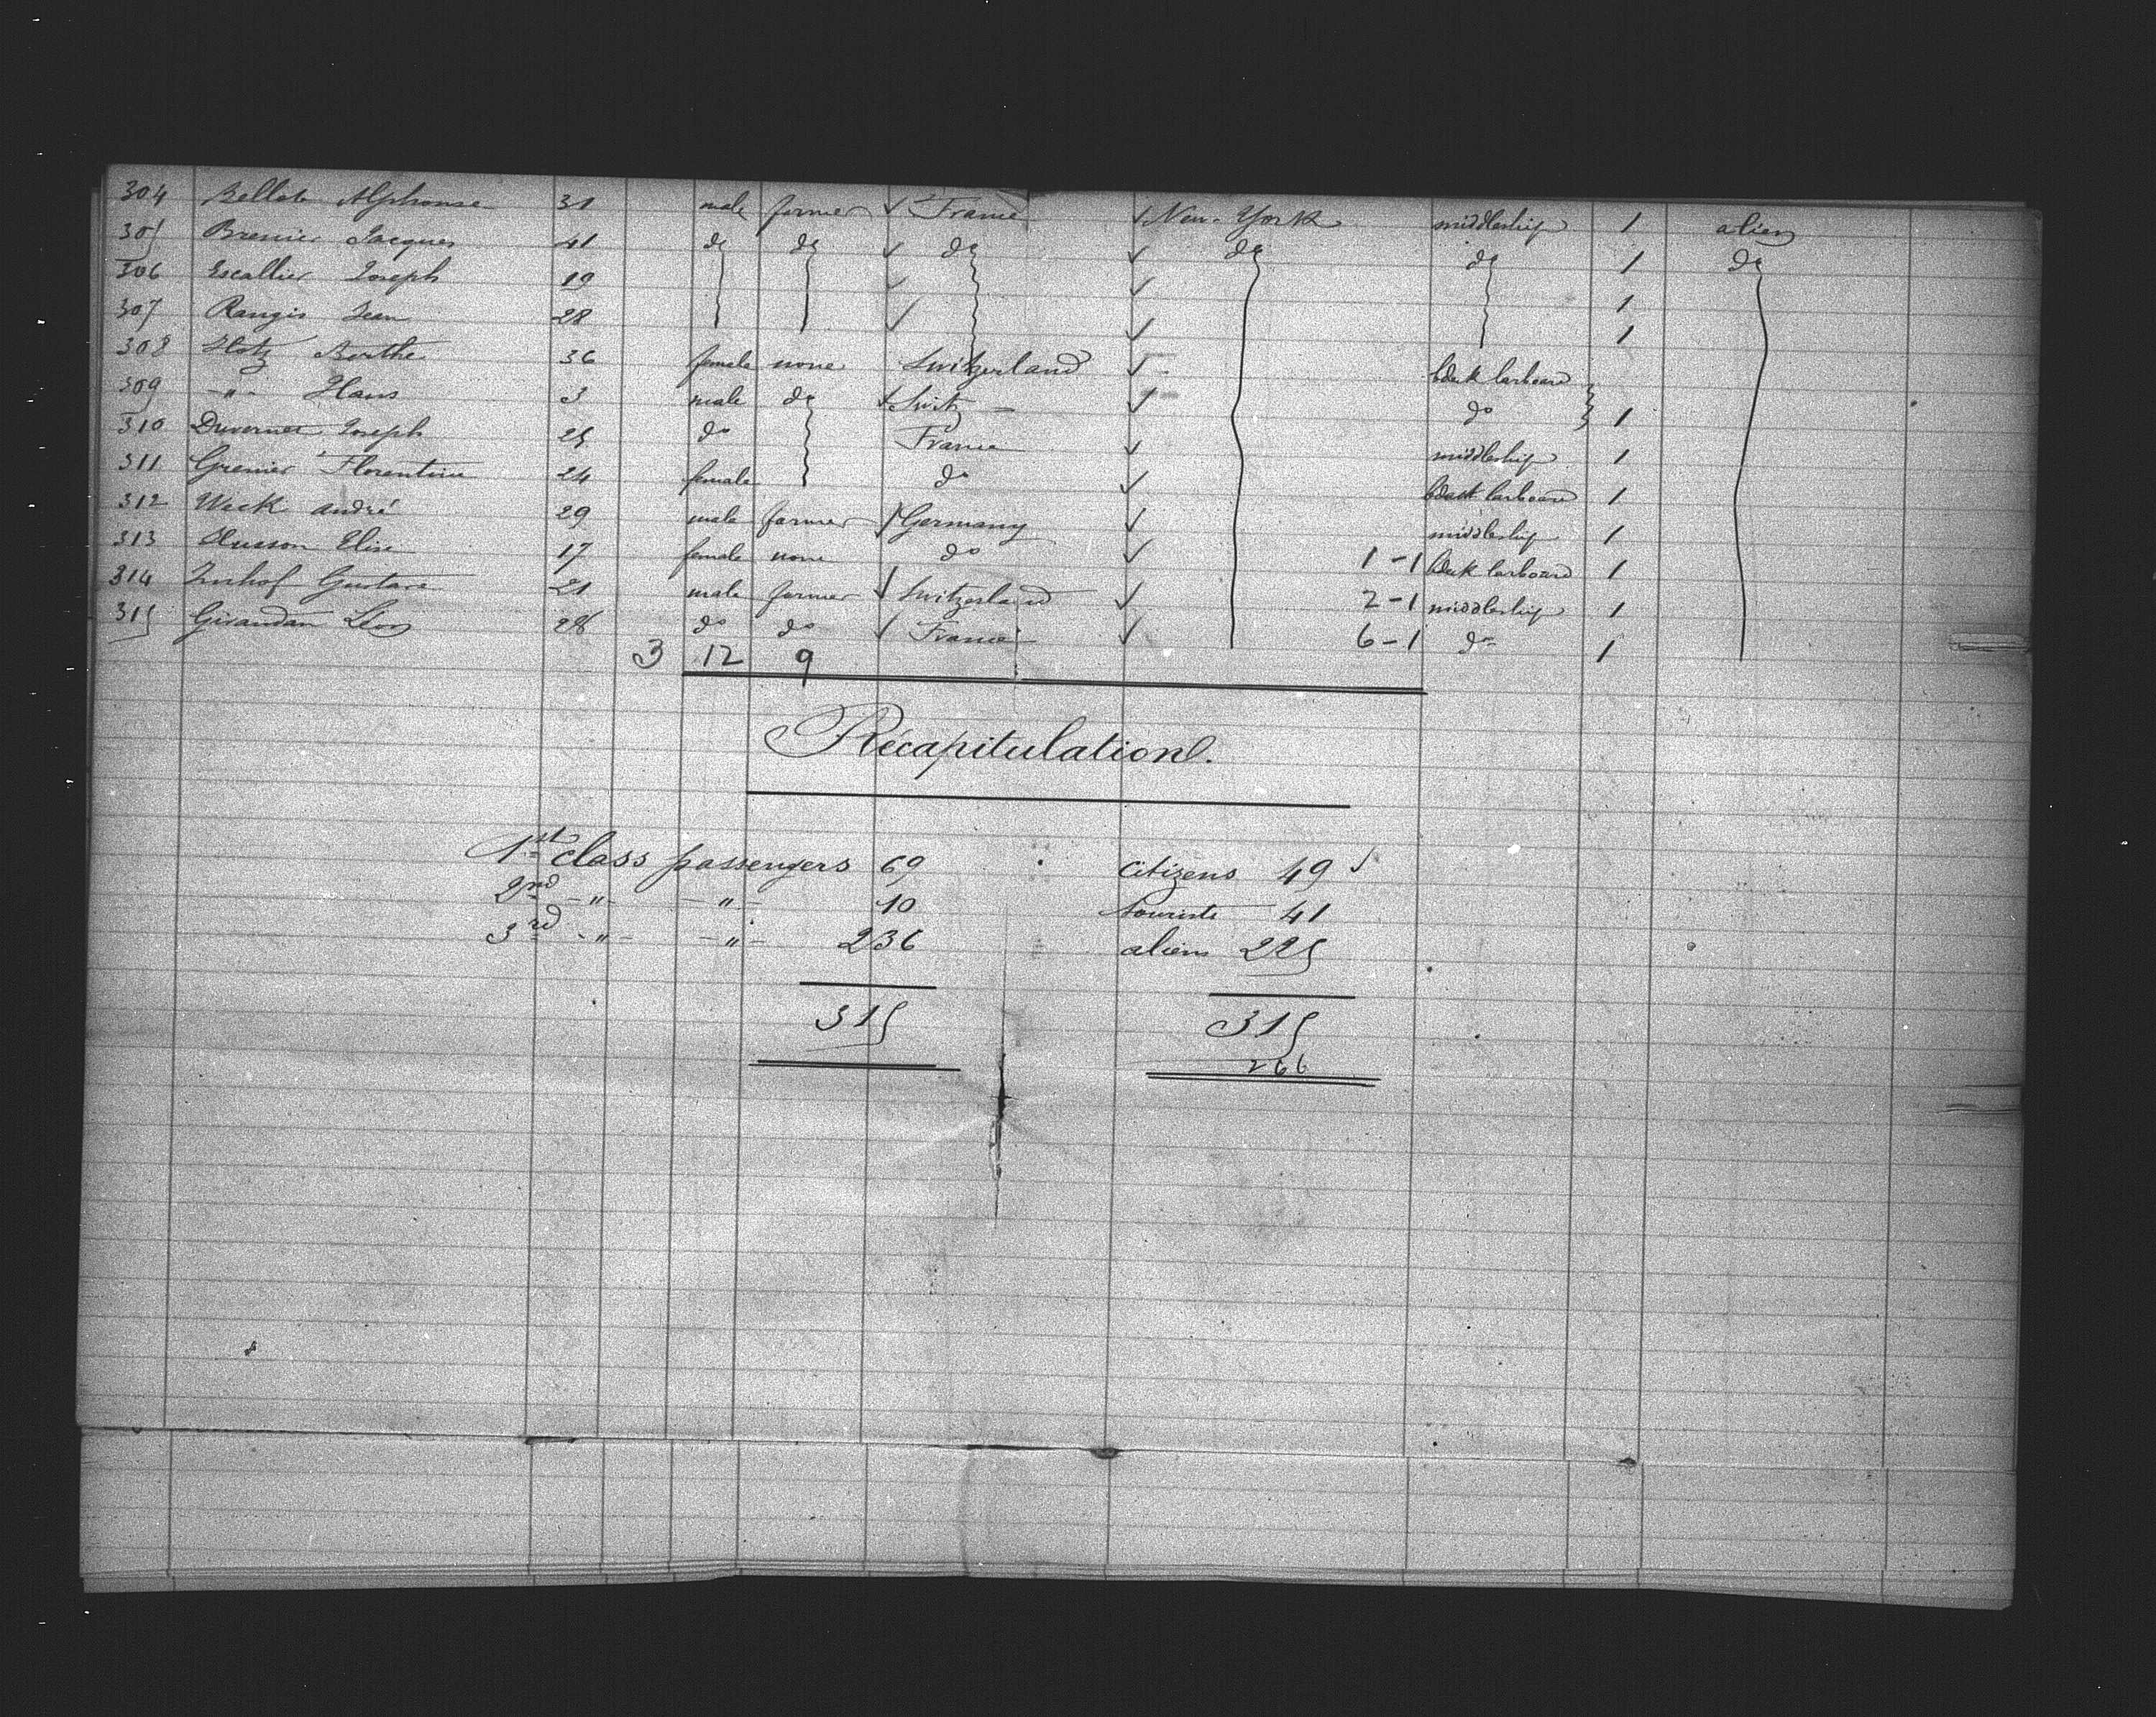 304 Bellot Alphonse 31 male farmer ✓ France ✓ New-York middleship 1 alien
305 Bremier Jacques 41 do do ✓ do ✓ do do 1 do
306 Escallier Joseph 19 ✓ ✓ 1
307 Rangis Jean 28 ✓ ✓ 1
308 Hotz Berthe 36 female none Switzerland ✓ - larboard
309 -"- Hans 3 male do ✓ Switz - ✓ do 1
310 Duvernet Joseph 25 do France ✓ middleship 1
311 Grenier Florentine 24 female do ✓ larboard 1
312 Weck andré 29 male farmer ✓ Germany ✓ middleship 1
313 Husson Elise 17 female none do ✓ 1-1 larboard 1
314 Imhof Gustave 21 male farmer ✓ Switzerland ✓ 2-1 middleship 1
315 Giraudan Léon 28 do do ✓ France ✓ 6-1 do 1
3 12 9
Récapitulation.
1st class passengers 69 citizens 49 ✓
2nd -"- -"- 10 tourists 41
3rd -"- -"- 236 aliens 225
315 315
266